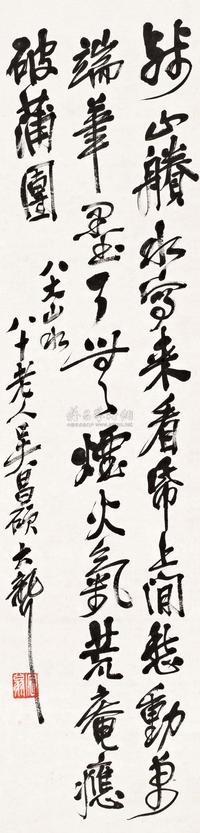 残山賸水寫来看帋上閒愁動萬
端筆墨了無煙火氣荒庵應
破蒲團
八大山水
八十老人吴昌碩大聾